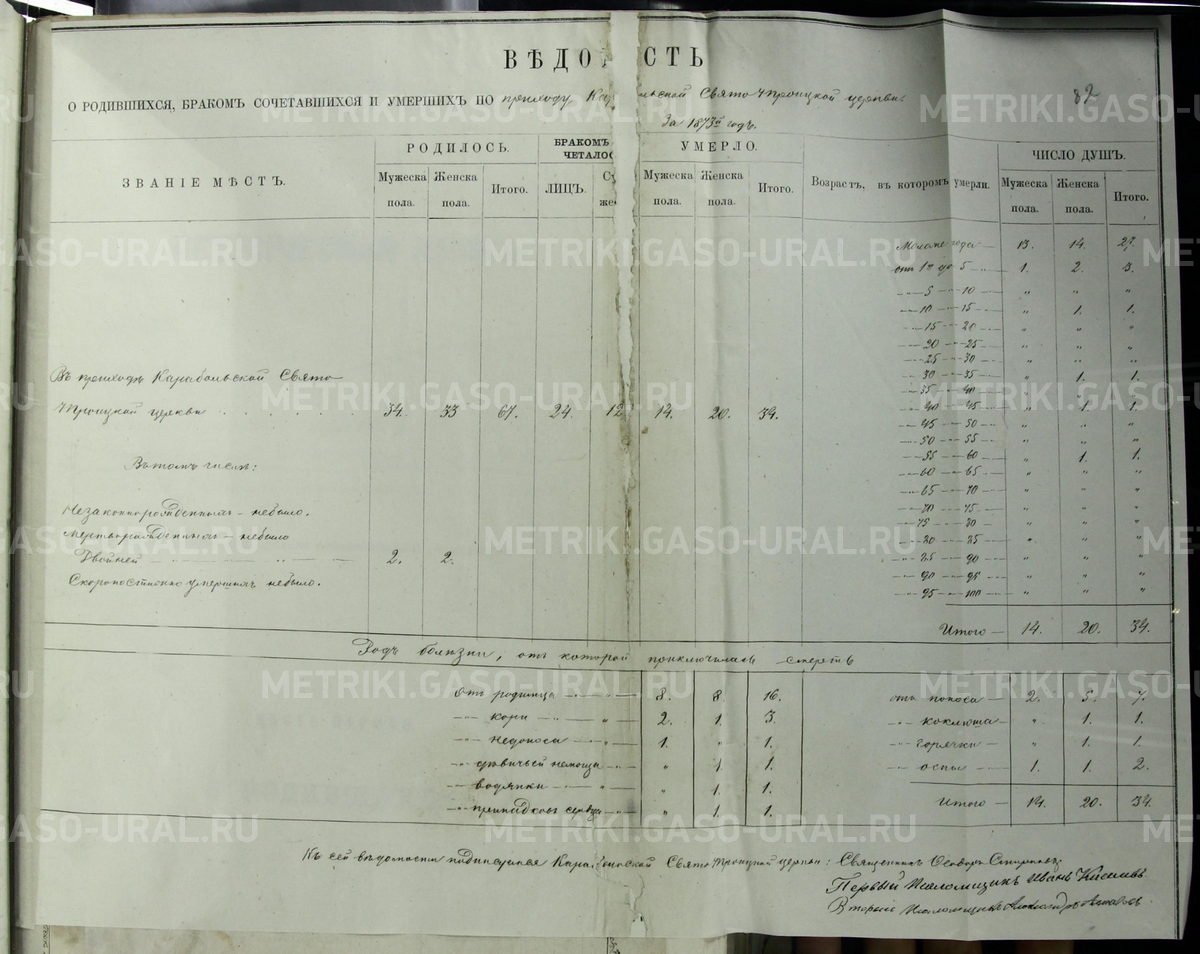 ВѢДО СТЬ
О РОДИВШИХСЯ, БРАКОМЪ СОЧЕТАВШИХСЯ И УМЕРШИХЪ ПО приходу Ка льской Свято Троицкой церкви.
82
За 1873й годъ.
ЗВАНІЕ МѢСТЪ. РОДИЛОСЬ. БРАКОМЪ ЧЕТАЛО УМЕРЛО. Возрастъ, въ которомъ умерли. ЧИСЛО ДУШЪ.
Мужеска пола. Женска пола. Итого. ЛИЦЪ. Мужеска пола. Женска пола. Итого. Мужеска пола. Женска пола. Итого.
Моложе года 13. 14. 27.
отъ 1го до 5 1. 2. 3.
5 — 10 " " "
10 — 15 " 1. 1.
15 — 20 " " "
20 — 25 " " "
25 — 30 " " "
30 — 35 " 1. 1.
35 — 40 " " "
40 — 45 " 1. 1.
45 — 50 " " "
50 — 55 " " "
55 — 60 " 1. 1.
60 — 65 " " "
65 — 70 " " "
70 — 75 " " "
75 — 80 " " "
80 — 85 " " "
85 — 90 " " "
90 — 95 " " "
95 — 100 " " "
Итого — 14. 20. 34.
Въ приходѣ Карабольской Свято
Троицкой церкви 34. 33 67. 24. 12 14. 20. 34.
Въ томъ числѣ:
Незаконнорожденныхъ — небыло.
Мертворожденныхъ — небыло
Двойней — 2. 2.
Скоропостижно умершихъ небыло.
Родъ болѣзни, отъ которой приключилась смерть
отъ родимца 8. 8. 16. отъ поноса 2. 5. 7.
кори 2. 1. 3. коклюша " 1. 1.
недоноса 1. " 1. горячки " 1. 1.
немощи " 1. 1. оспы 1. 1. 2.
водянки " 1. 1.
припадковъ сердца " 1. 1. Итого 14. 20. 34.
Къ сей вѣдомости подписуемся Кара больской Свято Троицкой церкви: Священникъ
Первый Псаломщикъ Иванъ Киселевъ
Второй Псаломщикъ Александръ
METRIKI.GASO-URAL.RU